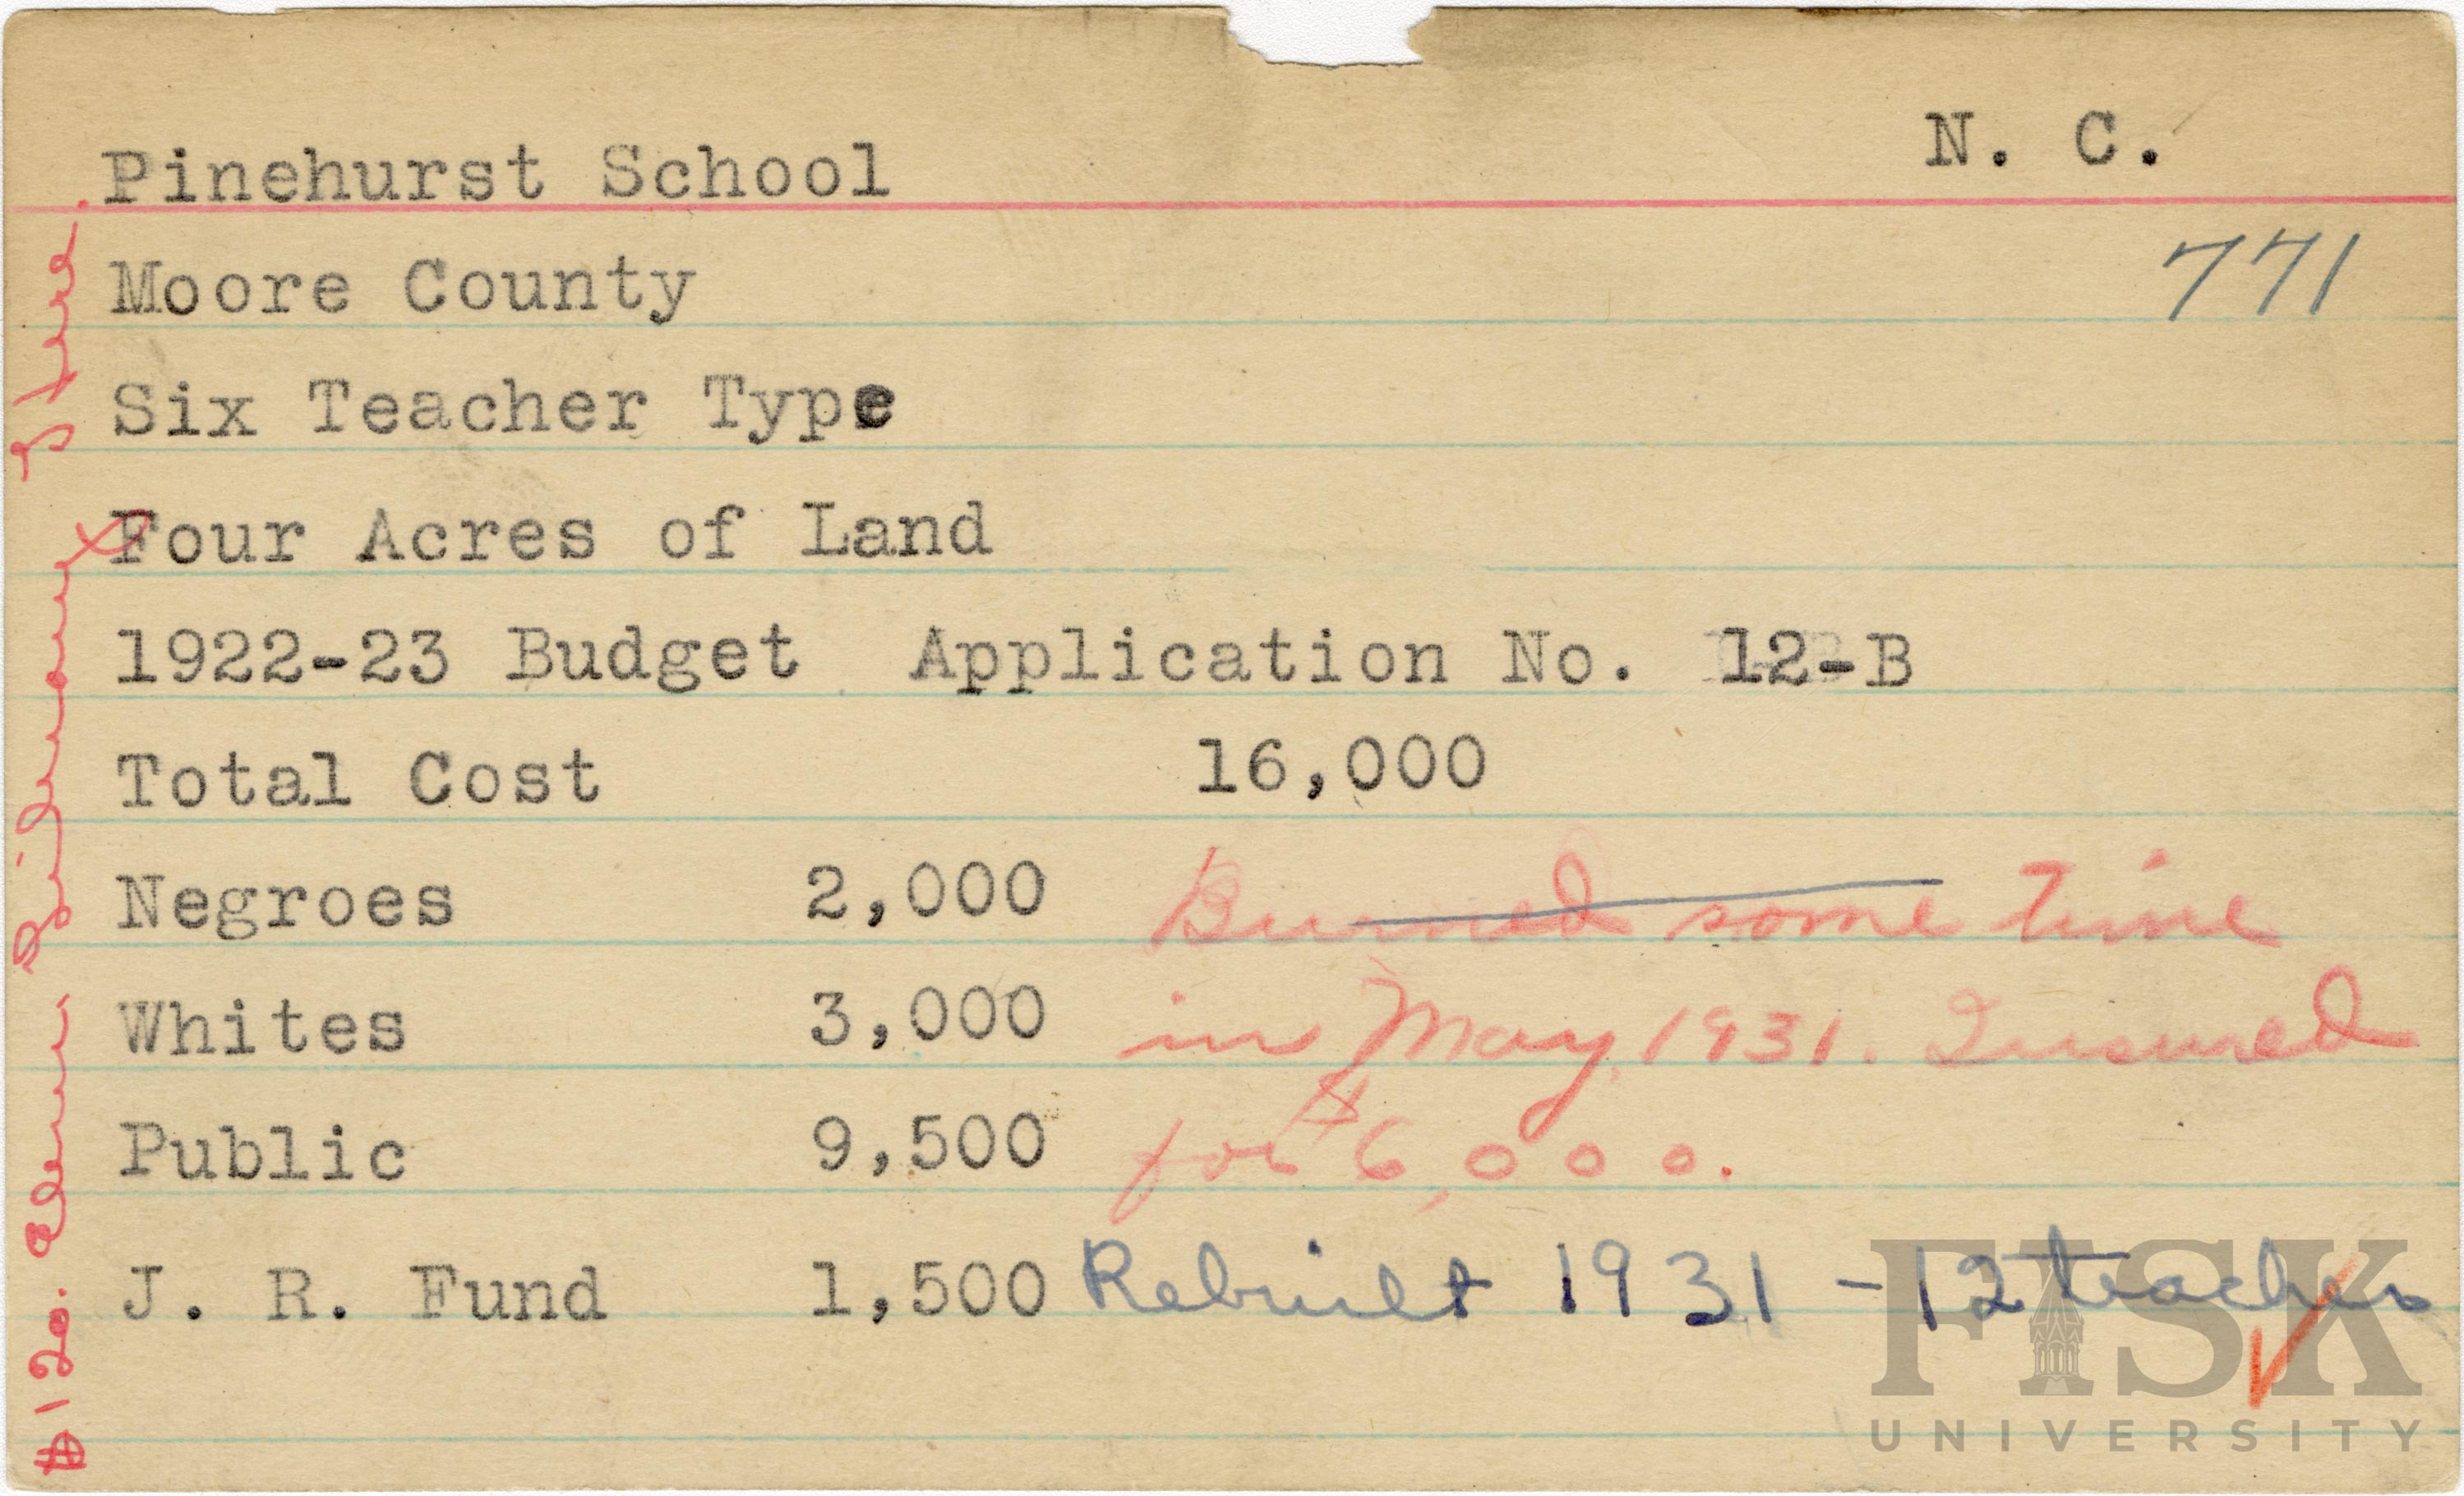 N. C.
Pinehurst School
771
Moore County
Six Teacher Type
Four Acres of Land
1922-23 Budget Application No. 12-B
Total Cost 16,000
Negroes 2,000 Burned some time
Whites 3,000 in May, 1931. Insured
Public 9,500 for $6,000.
J. R. Fund 1,500 Rebuilt 1931 - 12 teacher
$120. Elem.
FISK
UNIVERSITY